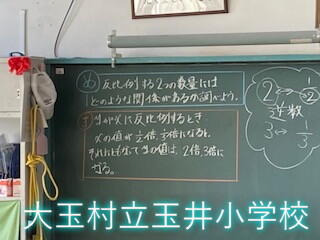 め 反比例する2つの数量には
どのような関係があるか調べよう。
ま yがxに反比例するとき
xの値が1/2倍、1/3倍になると、
それにともなってyの値は、2倍、3倍に
なる。
2 ↔ 1/2
逆数
3 ↔ 1/3
大玉村立玉井小学校